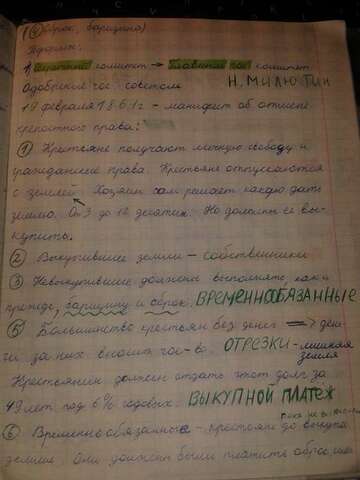 (4) оброк, барщина)
Реформы.
1) Секретный комитет → Главный гос. комитет
Одобрение гос. советом Н. МИЛЮТИН
19 февраля 1861г - манифест об отмене
крепостного права:
① Крестьяне получают личную свободу и
гражданские права. Крестьяне отпускаются
с землей. Хозяин сам решает какую дать
землю. От 3 до 12 десятин. Но должны её вы-
купить.
② Выкупившие земли - собственники
③ Невыкупившие должны выполнять, как и
прежде, барщину и оброк. ВРЕМЕННООБЯЗАННЫЕ
⑤ Большинство крестьян без денег => день-
ги за них вносит гос-во. ОТРЕЗКИ - лишняя земля
Крестьянин должен отдать этот долг за
49 лет под 6% годовых. ВЫКУПНОЙ ПЛАТЕЖ
⑥ Временнообязанные - крестьяне до выкупа
земли. Они должны были платить оброк